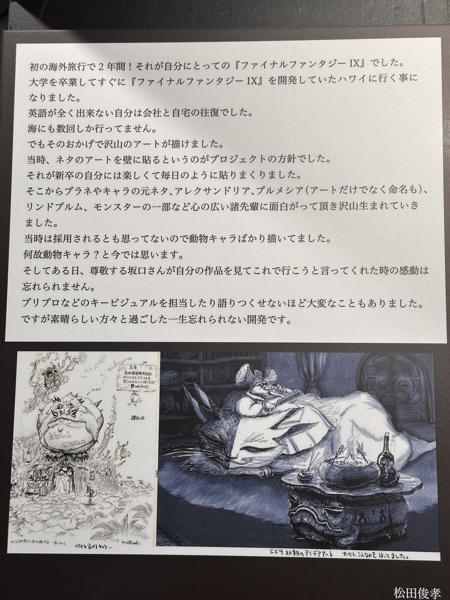 初の海外旅行で2年間!それが自分にとっての『ファイナルファンタジーIX』でした。
大学を卒業してすぐに『ファイナルファンタジーIX』を開発していたハワイに行く事に
なりました。
英語が全く出来ない自分は会社と自宅の往復でした。
海にも数回しか行ってません。
でもそのおかげで沢山のアートが描けました。
当時、ネタのアートを壁に貼るというのがプロジェクトの方針でした。
それが新卒の自分には楽しくて毎日のように貼りまくりました。
そこからプラネやキャラの元ネタ、アレクサンドリア、ブルメシア(アートだけでなく命名も)、
リンドブルム、モンスターの一部など心の広い諸先輩に面白がって頂き沢山生まれていき
ました。
当時は採用されるとも思ってないので動物キャラばかり描いてました。
何故動物キャラ?と今では思います。
そしてある日、尊敬する坂口さんが自分の作品を見てこれで行こうと言ってくれた時の感動は
忘れられません。
プリプロなどのキービジュアルを担当したり語りつくせないほど大変なこともありました。
ですが素晴らしい方々と過ごした一生忘れられない開発です。
FF9 初期のアイデアアート
松田俊孝